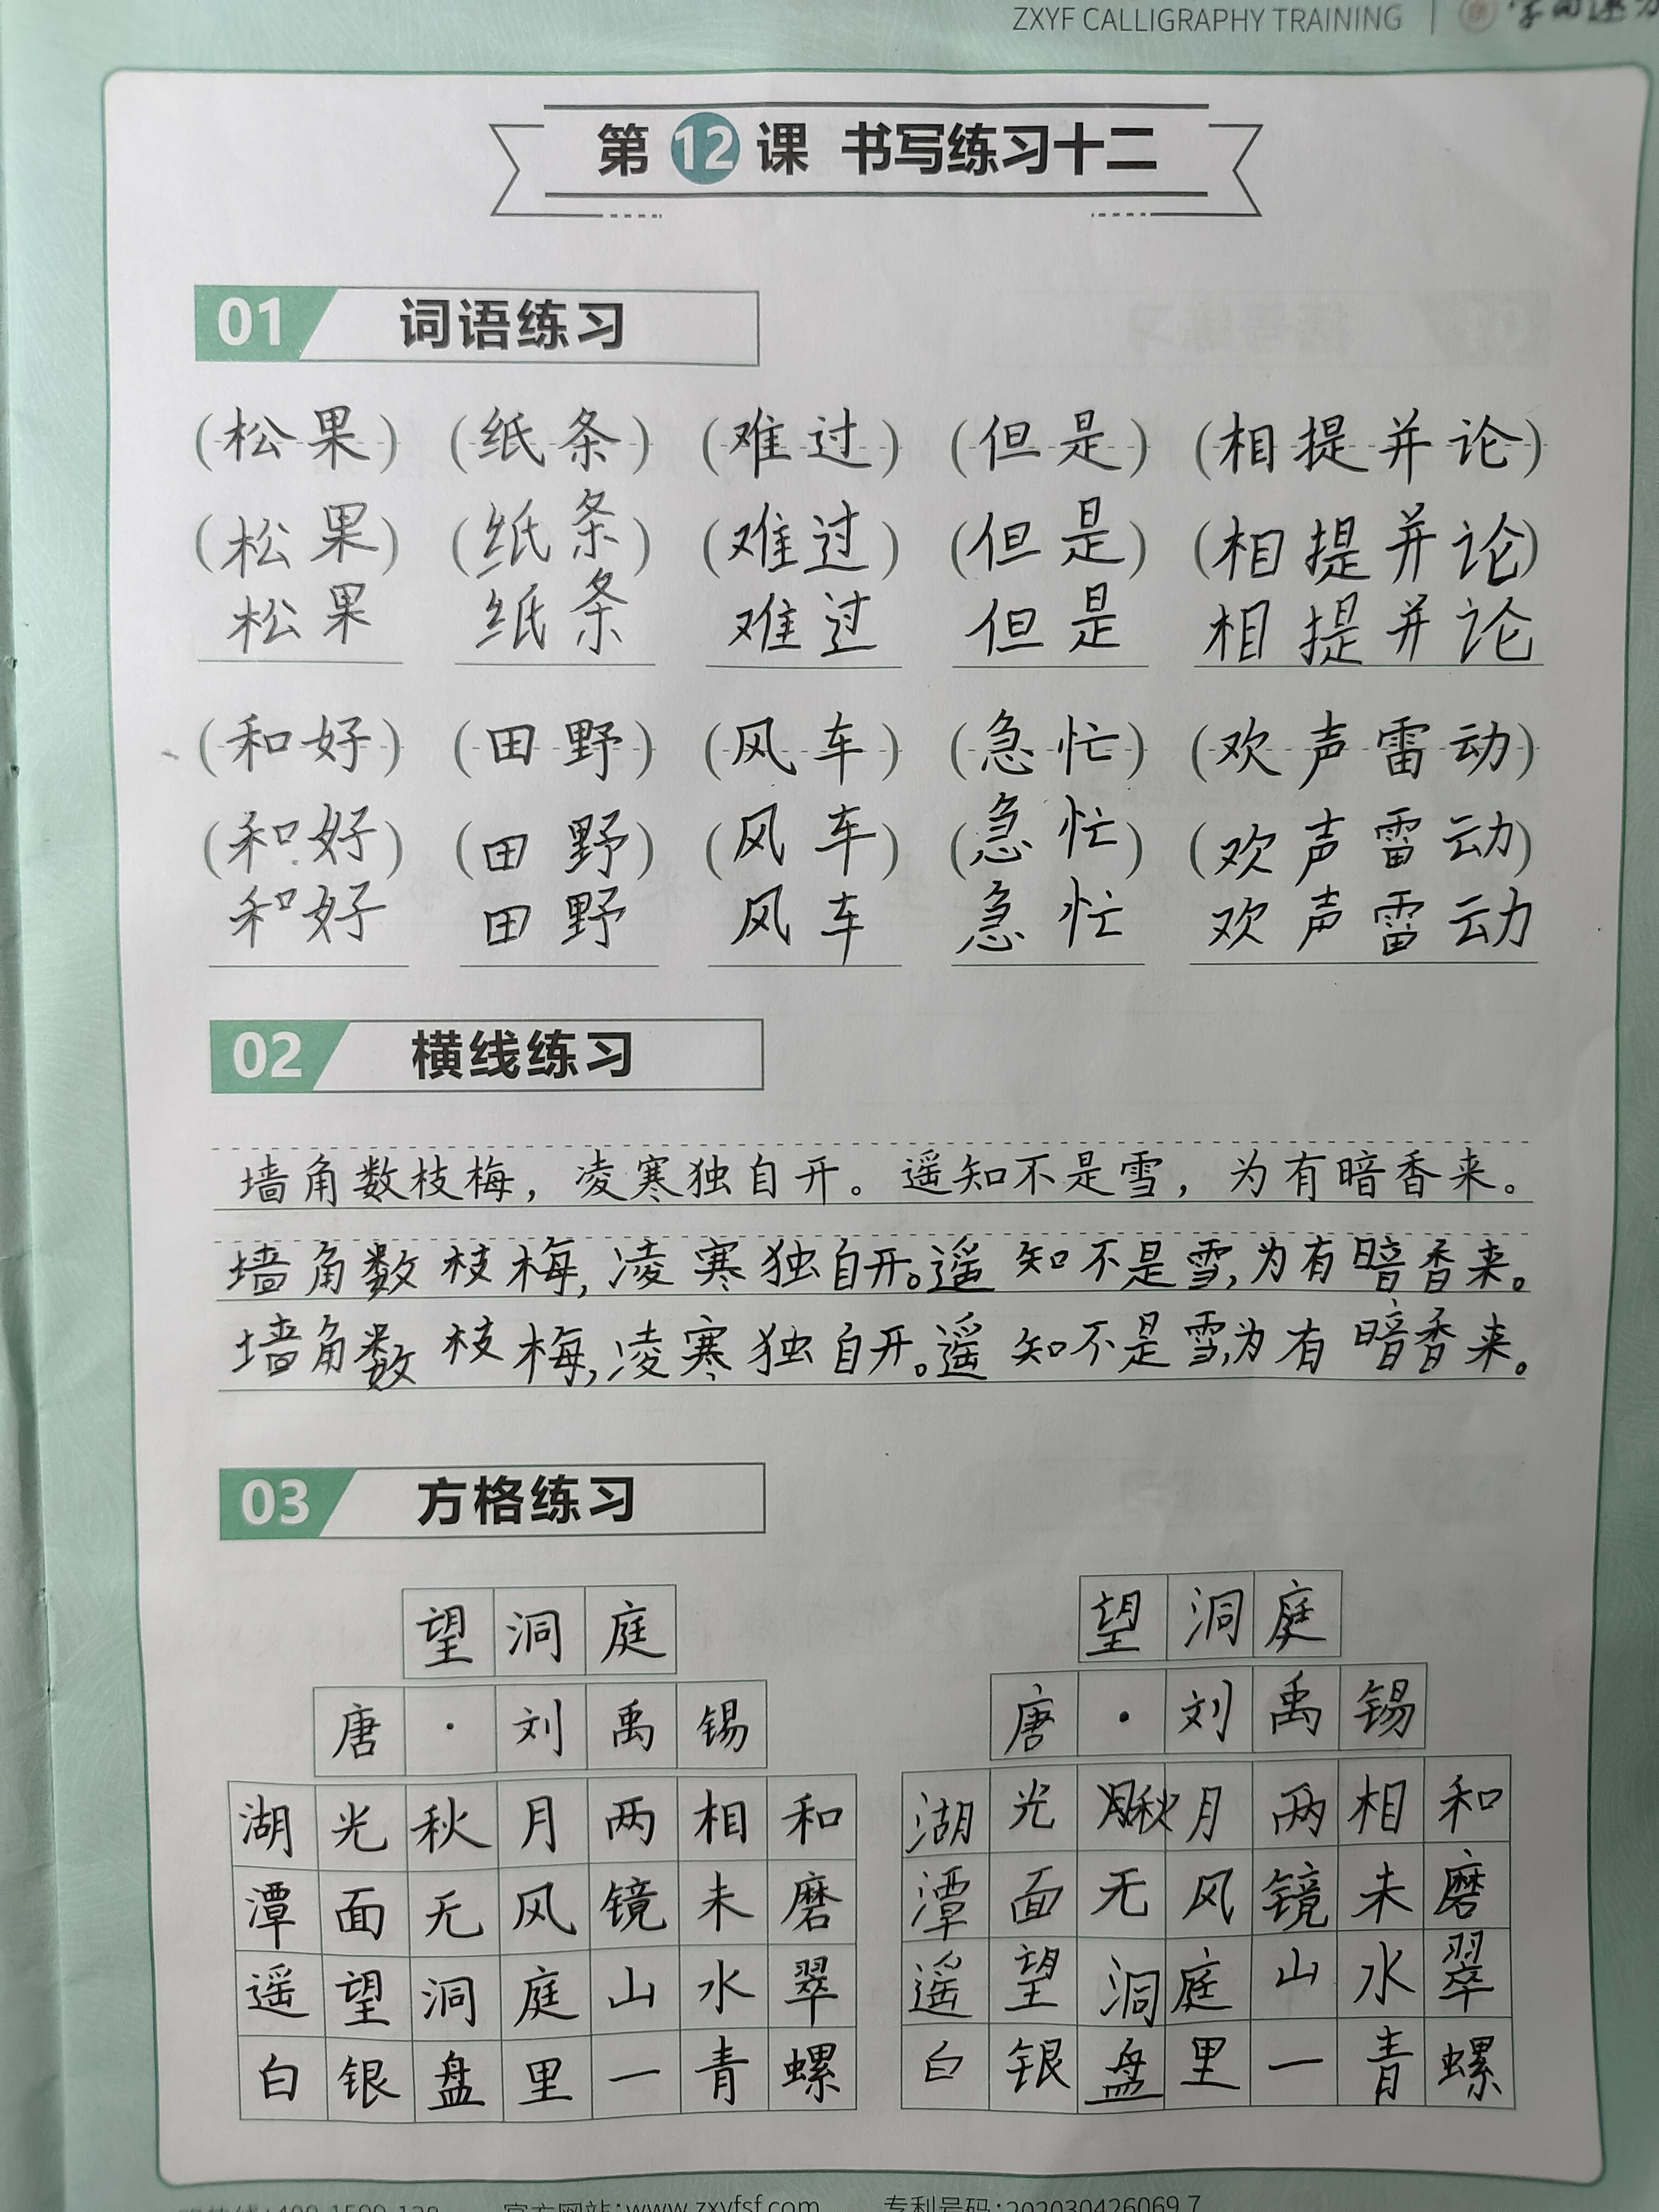 ZXYF CALLIGRAPHY TRAINING
第 12 课 书写练习十二
01 词语练习
(松果) (纸条) (难过) (但是) (相提并论)
(松果) (纸条) (难过) (但是) (相提并论)
松果 纸条 难过 但是 相提并论
(和好) (田野) (风车) (急忙) (欢声雷动)
(和好) (田野) (风车) (急忙) (欢声雷动)
和好 田野 风车 急忙 欢声雷动
02 横线练习
墙角数枝梅，凌寒独自开。遥知不是雪，为有暗香来。
墙角数枝梅,凌寒独自开。遥知不是雪,为有暗香来。
墙角数枝梅,凌寒独自开。遥知不是雪,为有暗香来。
03 方格练习
望洞庭
唐·刘禹锡
湖光秋月两相和
潭面无风镜未磨
遥望洞庭山水翠
白银盘里一青螺
望洞庭
唐·刘禹锡
湖光秋月两相和
潭面无风镜未磨
遥望洞庭山水翠
白银盘里一青螺
官方网站:www.zxyfsf.com 专利号码:202030426069.7